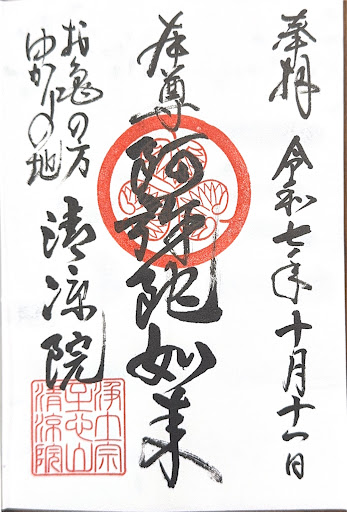 奉拝 令和七年十月十一日
本尊 阿弥陀如来
お亀の方
ゆかりの地
清涼院
浄土宗
至心山
清涼院